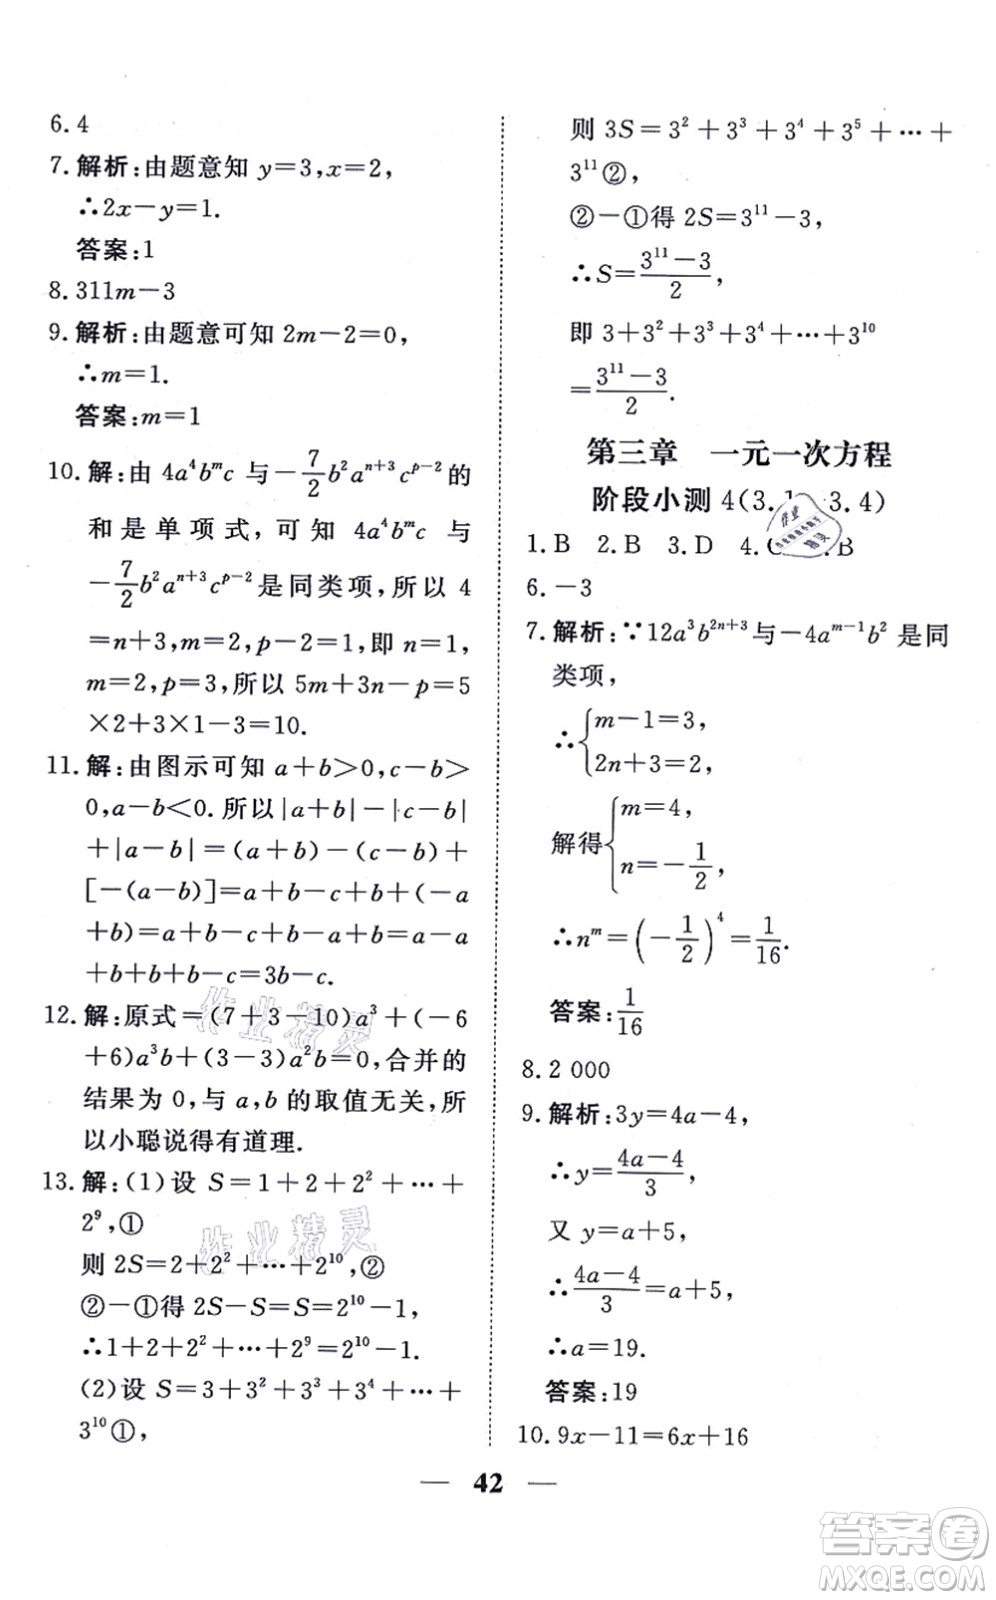 6.4
7.解析:由题意知 y=3,x=2,
∴2x-y=1.
答案:1
8.311m-3
9.解析:由题意可知 2m-2=0,
∴m=1.
答案:m=1
10.解:由 4a⁴bᵐc 与 -7/2 b²aⁿ⁺³cᵖ⁻² 的
和是单项式,可知 4a⁴bᵐc 与
-7/2 b²aⁿ⁺³cᵖ⁻² 是同类项,所以 4
=n+3,m=2,p-2=1,即 n=1,
m=2,p=3,所以 5m+3n-p=5
×2+3×1-3=10.
11.解:由图示可知 a+b>0,c-b>
0,a-b<0.所以|a+b|-|c-b|
+|a-b|=(a+b)-(c-b)+
[-(a-b)]=a+b-c+b+(-a
+b)=a+b-c+b-a+b=a-a
+b+b+b-c=3b-c.
12.解:原式=(7+3-10)a³+(-6
+6)a³b+(3-3)a²b=0,合并的
结果为 0,与 a,b 的取值无关,所
以小聪说得有道理.
13.解:(1)设 S=1+2+2²+…+
2⁹,①
则 2S=2+2²+…+2¹⁰,②
②-①得 2S-S=S=2¹⁰-1,
∴1+2+2²+…+2⁹=2¹⁰-1.
(2)设 S=3+3²+3³+3⁴+…+
3¹⁰①,
则 3S=3²+3³+3⁴+3⁵+…+
3¹¹②,
②-①得 2S=3¹¹-3,
∴S=(3¹¹-3)/2,
即 3+3²+3³+3⁴+…+3¹⁰
=(3¹¹-3)/2.
第三章 一元一次方程
阶段小测 4(3.1 3.4)
1.B 2.B 3.D 4. .B
6.-3
7.解析:∵12a³b²ⁿ⁺³与-4aᵐ⁻¹b² 是同
类项,
∴{m-1=3,
2n+3=2,
解得{m=4,
n=-1/2,
∴nᵐ=(-1/2)⁴=1/16.
答案:1/16
8.2 000
9.解析:3y=4a-4,
∴y=(4a-4)/3,
又 y=a+5,
∴(4a-4)/3=a+5,
∴a=19.
答案:19
10.9x-11=6x+16
— 42 —
作业精灵
作业精灵
答案卷
MXQE.COM